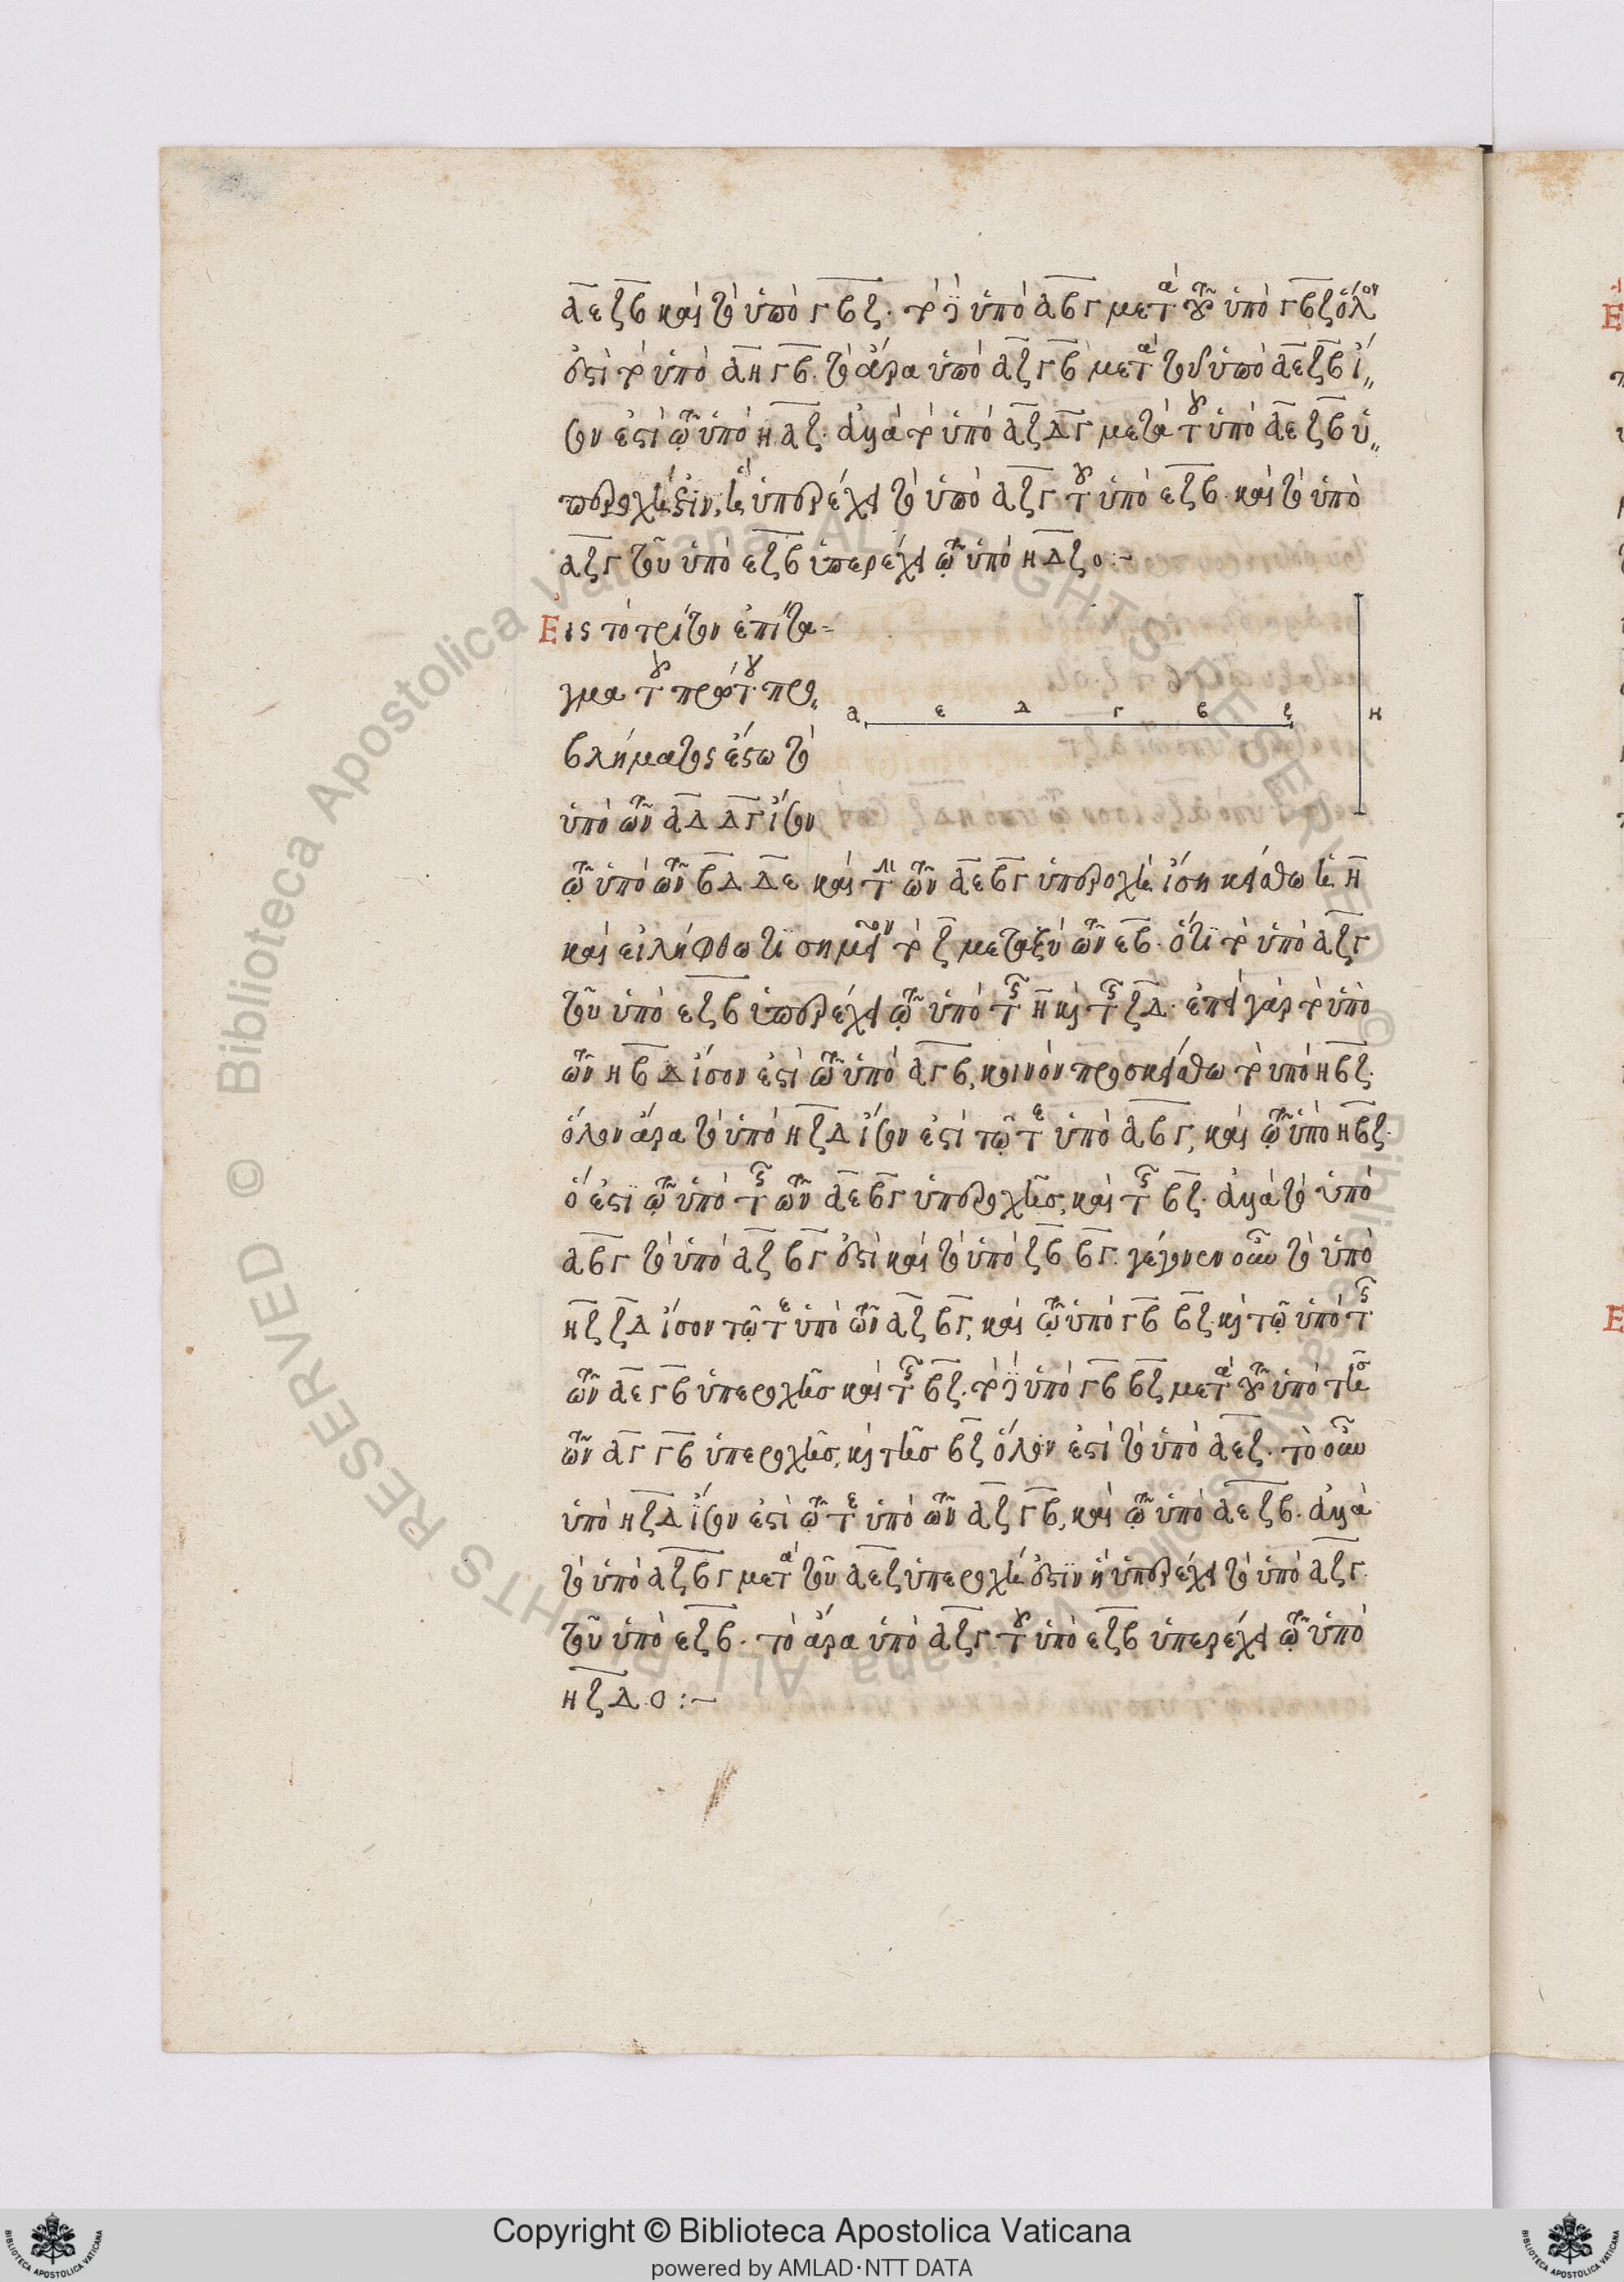 αεζβ καὶ τὸ ὑπὸ γβζ. τὸ δὲ ὑπὸ αβγ μετὰ τοῦ ὑπὸ γβζ ὅλον
ἐστὶ τὸ ὑπὸ αη γβ. τὸ ἄρα ὑπὸ αζ γβ μετὰ τοῦ ὑπὸ αεζβ ἴ
σον ἐστὶ τῶ ὑπὸ η αζ. ἀλλὰ τὸ ὑπὸ αζ δγ μετὰ τοῦ ὑπὸ αε ζβ ὑ
περοχή ἐστιν, ἧ ὑπερέχει τὸ ὑπὸ αζγ τοῦ ὑπὸ εζβ. καὶ τὸ ὑπὸ
αζγ τοῦ ὑπὸ εζβ ὑπερέχει τῶ ὑπὸ ηδζ ο:–
Εις τὸ τρίτον ἐπίτα
γμα τοῦ πρώτου προ
βλήματος ἔστω τὸ
ὑπὸ τῶν αδ δγ ἴσον
τῶ ὑπὸ τῶν βδ δε καὶ τῆ τῶν αε βγ ὑπεροχῆ ἴση κείσθω ἡ η
καὶ εἰλήφθω τι σημεῖον τὸ ζ μεταξὺ τῶν εβ. ὅτι τὸ ὑπὸ αζγ
τοῦ ὑπὸ εζβ ὑπερέχει τῶ ὑπὸ τῆς η καὶ τῆς ζδ. ἐπεὶ γὰρ τὸ ὑπὸ
τῶν η βδ ἴσον ἐστὶ τῶ ὑπὸ αγβ, κοινὸν προσκείσθω τὸ ὑπὸ ηβζ.
ὅλον ἄρα τὸ ὑπὸ ηζδ ἴσον ἐστὶ τῶ τε ὑπὸ αβγ, καὶ τῶ ὑπὸ ηβζ.
ὅ ἐστι τῶ ὑπὸ τῆς τῶν αε βγ ὑπεροχῆς, καὶ τῆς βζ. ἀλλὰ τὸ ὑπὸ
αβγ τὸ ὑπὸ αζ βγ ἐστὶ καὶ τὸ ὑπὸ ζβ βγ. γέγονεν οὖν τὸ ὑπὸ
ηζ ζδ ἴσον τῶ τε ὑπὸ τῶν αζ βγ, καὶ τῶ ὑπὸ γβ βζ. καὶ τῶ ὑπὸ τῆς
τῶν αε γβ ὑπεροχῆς καὶ τῆς βζ. τὸ δὲ ὑπὸ γβ βζ μετὰ τοῦ ὑπὸ τῆς
τῶν αγ γβ ὑπεροχῆς, καὶ τῆς βζ ὅλον ἐστὶ τὸ ὑπὸ αεζ. τὸ οὖν
ὑπὸ ηζδ ἴσον ἐστὶ τῶ τε ὑπὸ τῶν αζ γβ, καὶ τῶ ὑπὸ αεζβ. ἀλλὰ
τὸ ὑπὸ αζβγ μετὰ τοῦ αεζ ὑπεροχή ἐστιν ἡ ὑπερέχει τὸ ὑπὸ αζγ.
τοῦ ὑπὸ εζβ. τὸ ἄρα ὑπὸ αζγ τοῦ ὑπὸ εζβ ὑπερέχει τῶ ὑπὸ
ηζδ.ο:–
α ε δ γ β ζ η
Copyright © Biblioteca Apostolica Vaticana
powered by AMLAD·NTT DATA